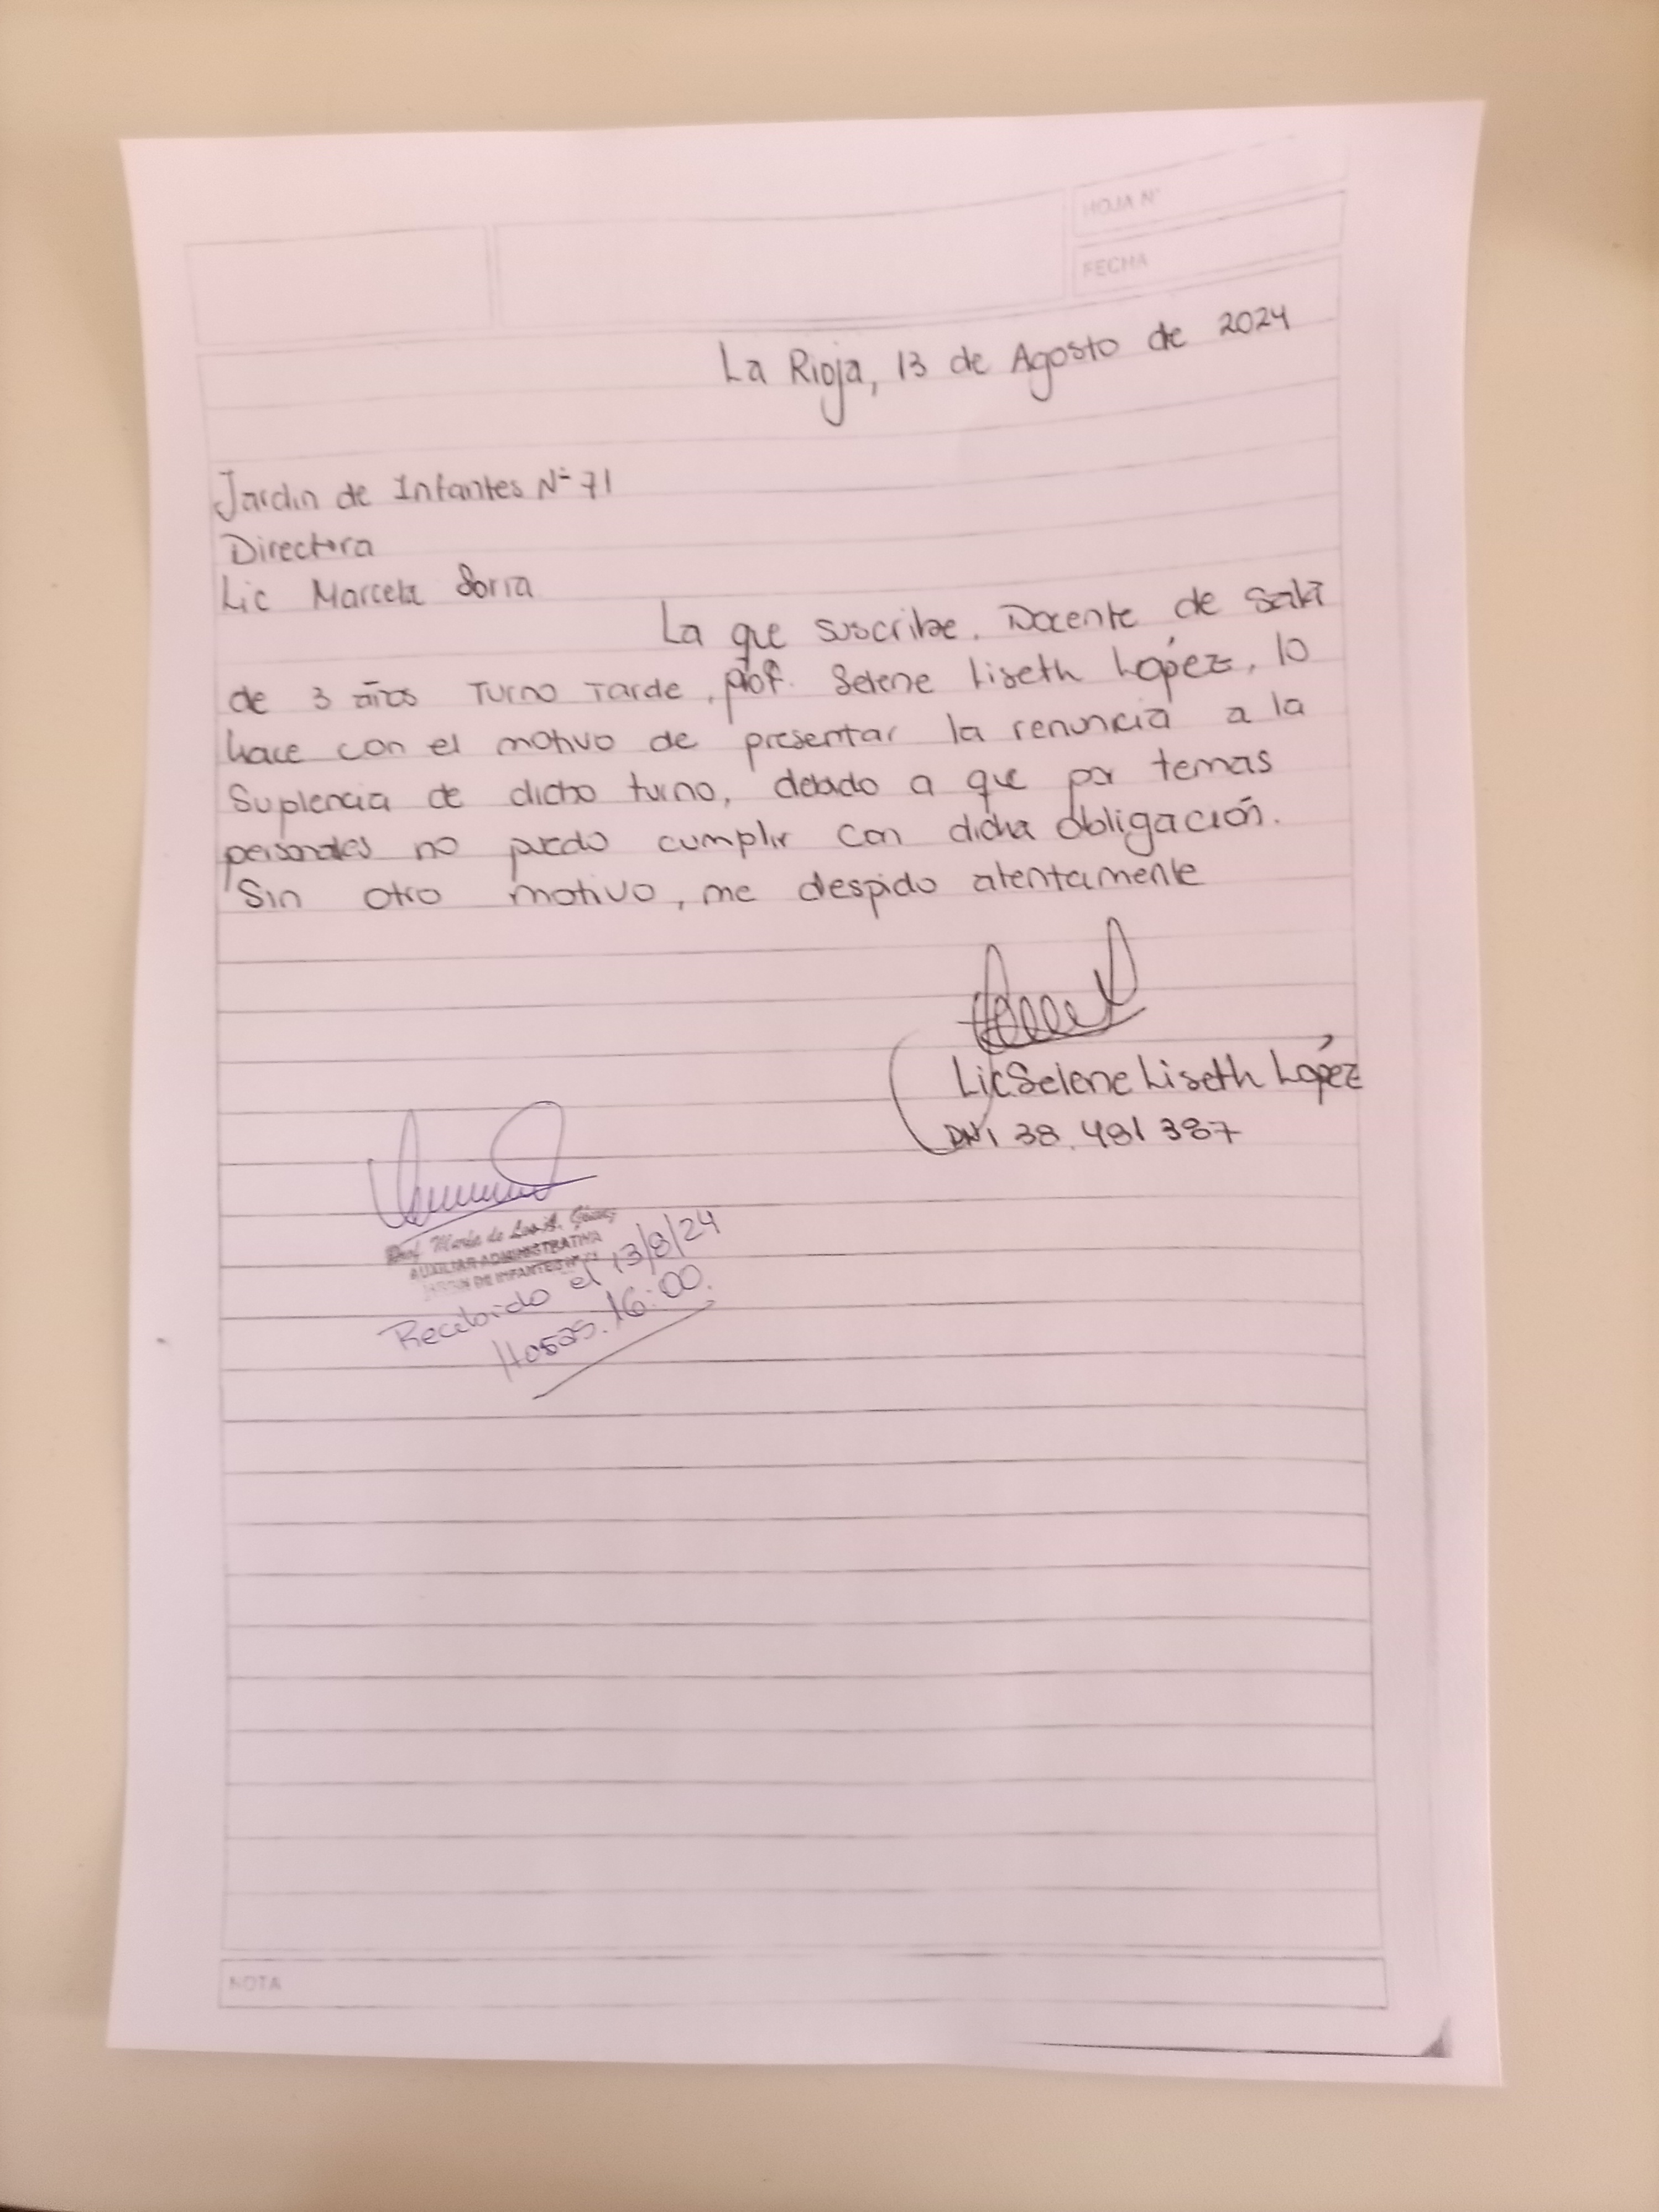 HOJA N°
FECHA
La Rioja, 13 de Agosto de 2024
Jardin de Infantes N° 71
Directora
Lic Marcela Soria
La que suscribe. Docente de sala
de 3 años Turno Tarde, prof. Selene Liseth López, lo
hace con el motivo de presentar la renuncia a la
Suplencia de dicho turno, debido a que por temas
personales no puedo cumplir con dicha obligación.
Sin otro motivo, me despido atentamente
Lic Selene Liseth López
DNI 38.481387
Prof. María de Los A.
AUXILIAR ADMINISTRATIVA
JARDIN DE INFANTES N° 71
Recebido el 13/8/24
Horas. 16:00.
NOTA